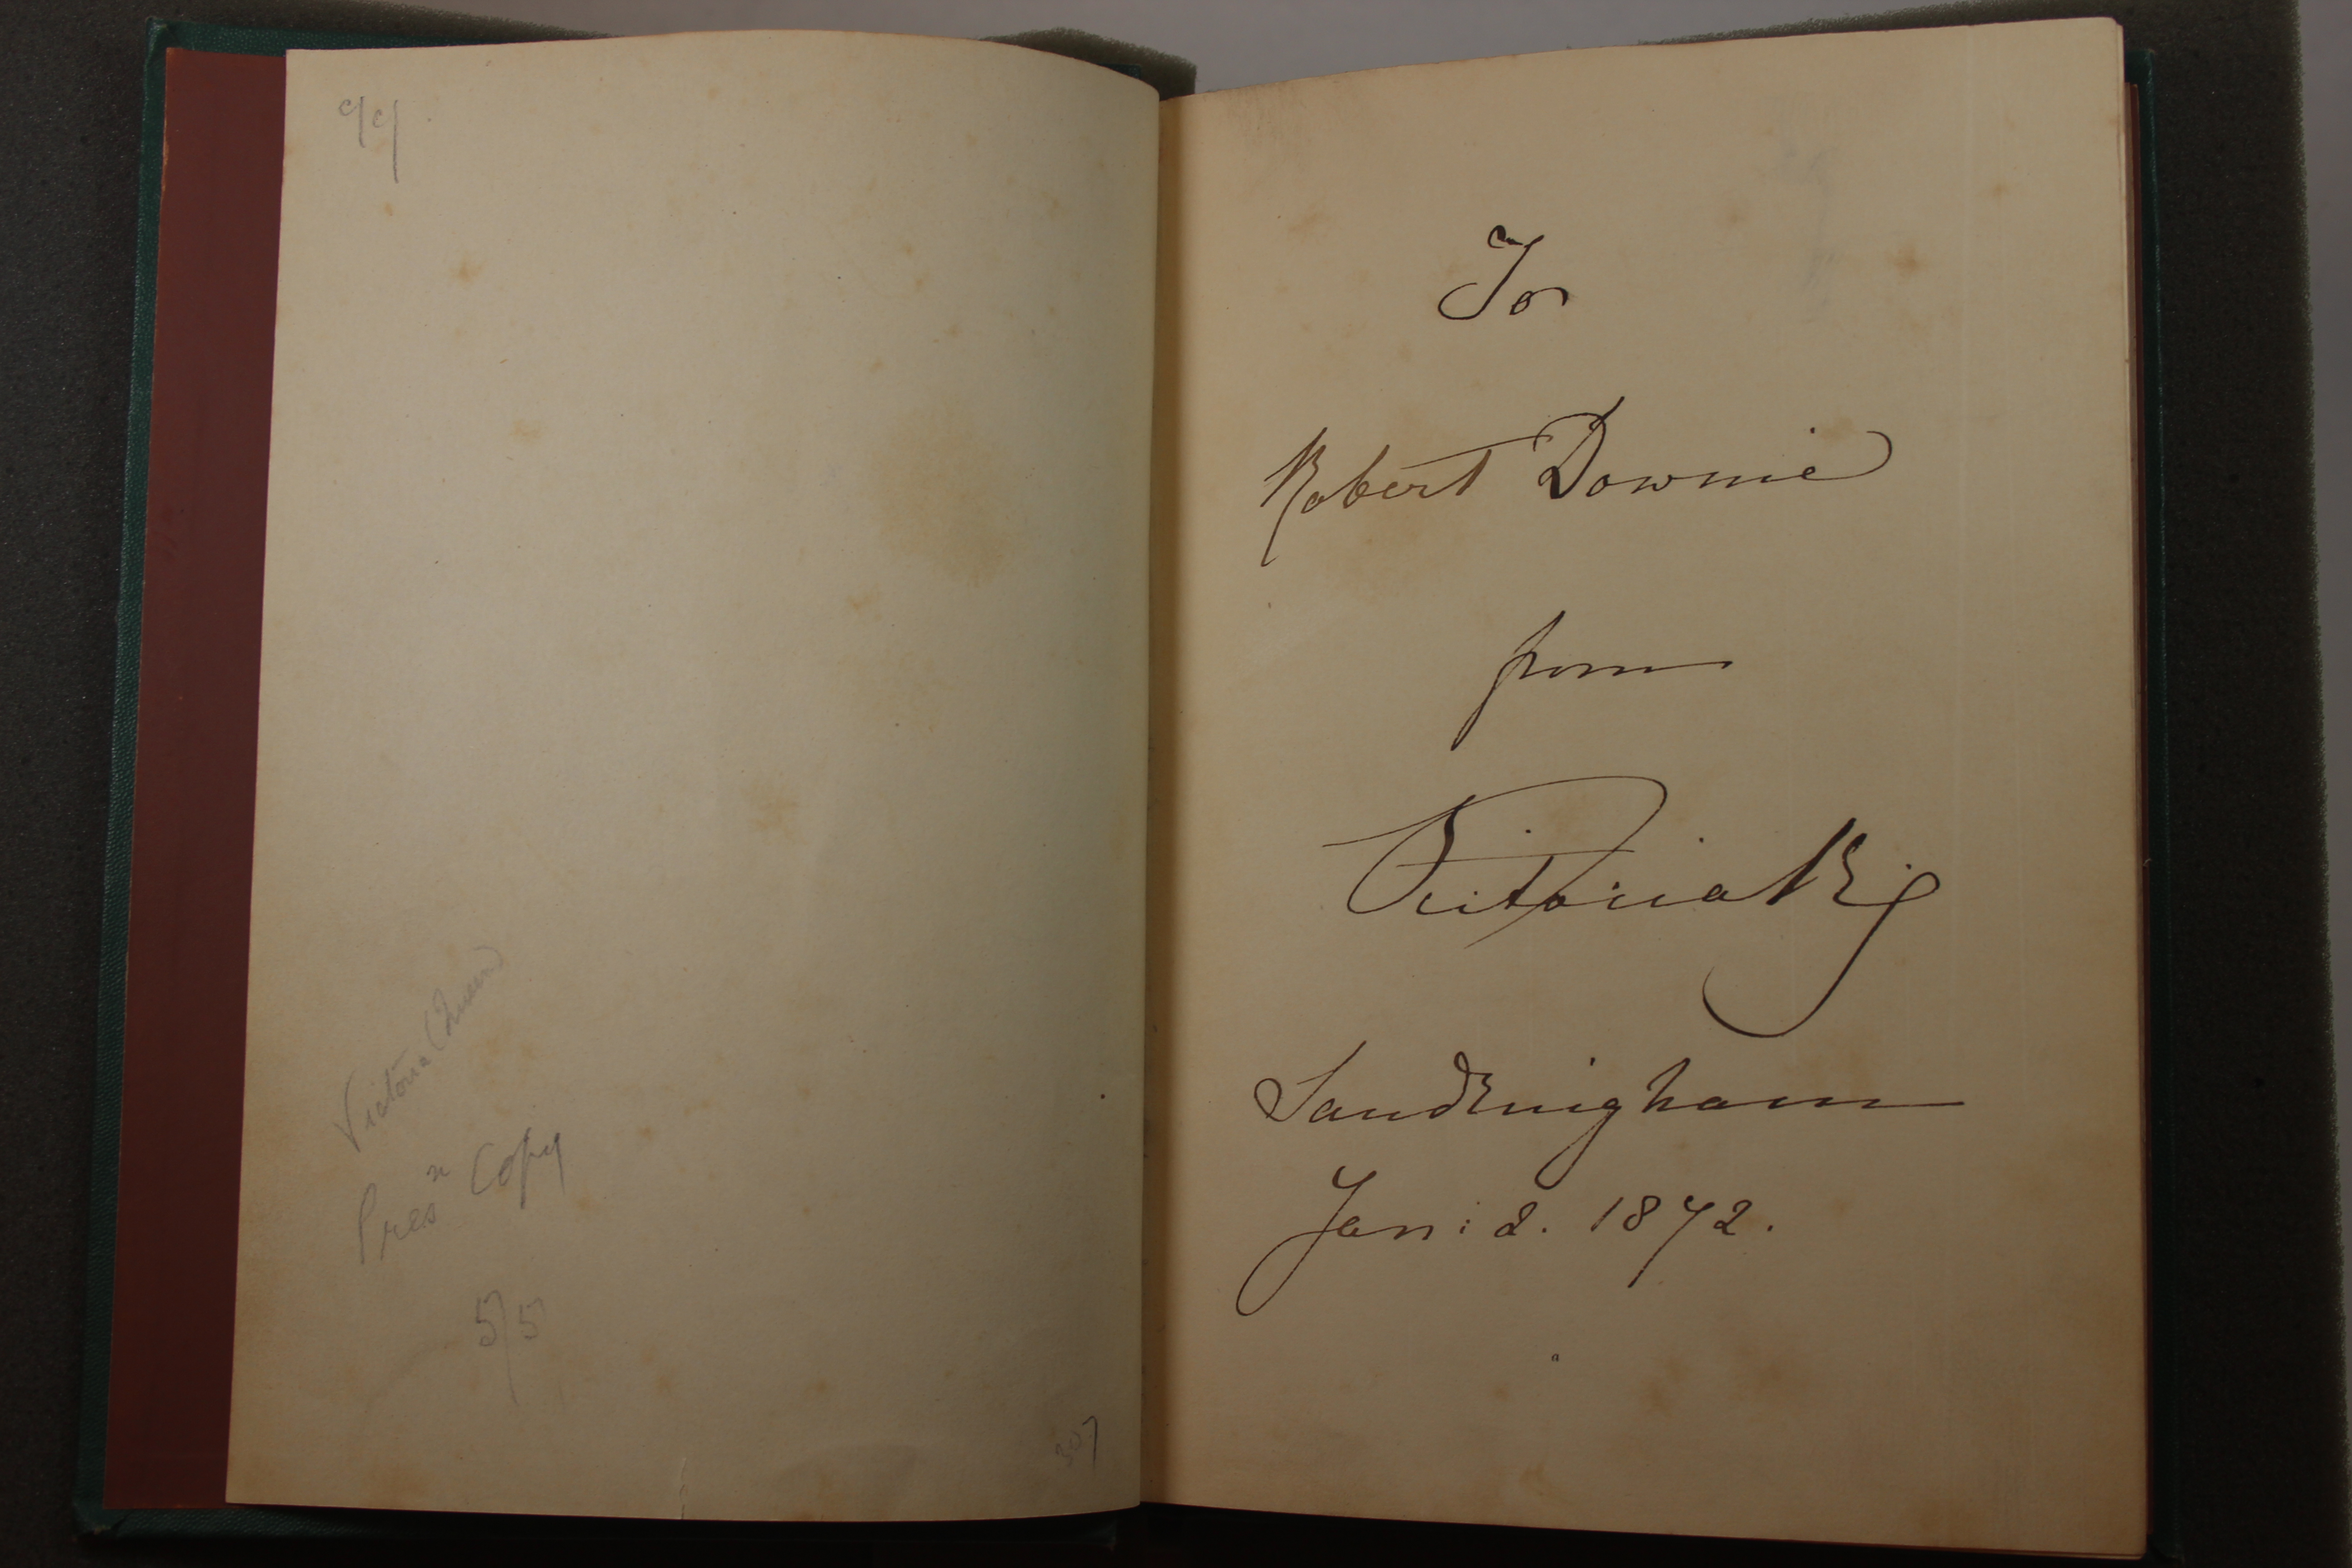 99
Victoria (Queen)
Presⁿ Copy
5/5
307
To
Robert Downie
from
Victoria R
Sandringham
Jan: 2. 1872.